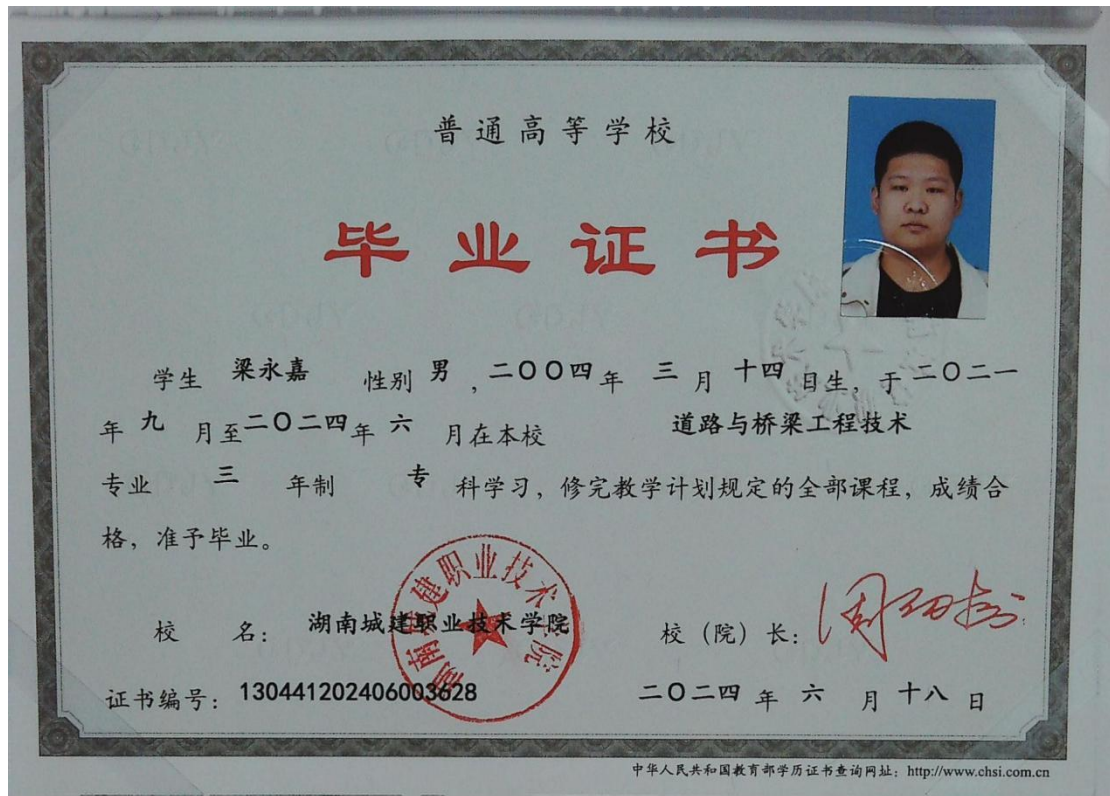 普通高等学校
毕业证书
学生 梁永嘉 性别 男 ,二〇〇四年 三 月 十四 日生,于 二〇二一
年 九 月至二〇二四年 六 月在本校 道路与桥梁工程技术
专业 三 年制 专 科学习,修完教学计划规定的全部课程,成绩合
格,准予毕业。
湖南城建职业技术学院
校 名: 湖南城建职业技术学院 校(院)长:
证书编号: 130441202406003628 二〇二四 年 六 月 十八 日
中华人民共和国教育部学历证书查询网址:http://www.chsi.com.cn